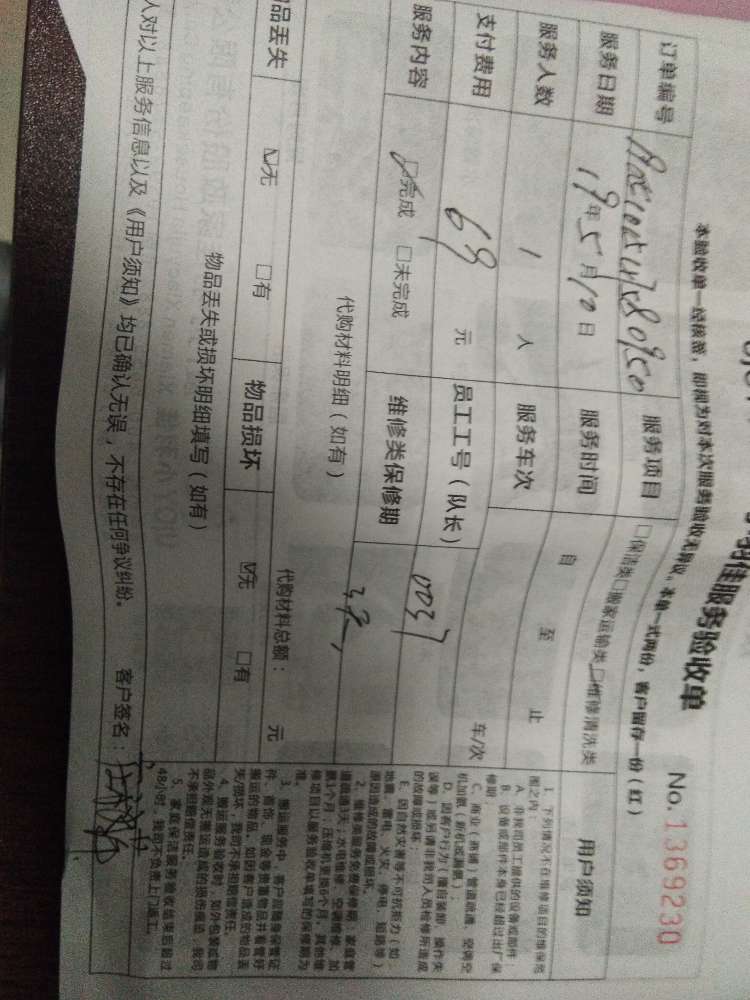 佳服务验收单
No.1369230
本验收单一经核签，即视为对本次服务验收无异议，本单一式两份，客户留存一份（红）
订单编号
服务项目 □保洁类□搬家运输类□维修清洗类
服务日期 19年5月10日 服务时间 自 至 止
服务人数 1 人 服务车次 车/次
支付费用 69 元 员工工号（队长） 0037
服务内容 完成 □未完成 维修类保修期 3天
代购材料明细（如有）
代购材料总额： 元
品丢失 无 □有 物品损坏 无 □有
物品丢失或损坏明细填写（如有）
人对以上服务信息以及《用户须知》均已确认无误，不存在任何争议纠纷。 客户签名：
用户须知
1. 下列情况不在维修项目的维保范
围之内：
A. 非我司员工提供的设备或部件
B. 设备或部件本身已经超过出厂保
修期
C. 商业（商铺）管道疏通、空调空
机加氨（新机或漏氨）；
D. 因客户行为（擅自装卸、操作失
误等）或另请非我司人员检修所造成
的故障或损坏；
E. 因自然灾害等不可抗拒力（如：
地震、雷电、火灾、停电、短路等）
原因造成的故障或损坏。
2. 维修类服务免费保修期：家庭管
道疏通3天；水电维修、空调维修、加
氨1个月，压缩机更换6个月，其他维
修项目以服务验收单填写的保修期为
准。
3. 搬运服务中，客户应随身保管证
件、首饰、现金等贵重物品并看管好
搬运的物品，如因客户造成的物品丢
失/损坏，我司不承担赔偿责任。
4. 搬运服务验收时，如外包装或物
品外观无搬运造成的损伤痕迹，我司
不承担赔偿责任。
5. 家庭保洁服务验收结束后超过
48小时，我司不负责上门返工。